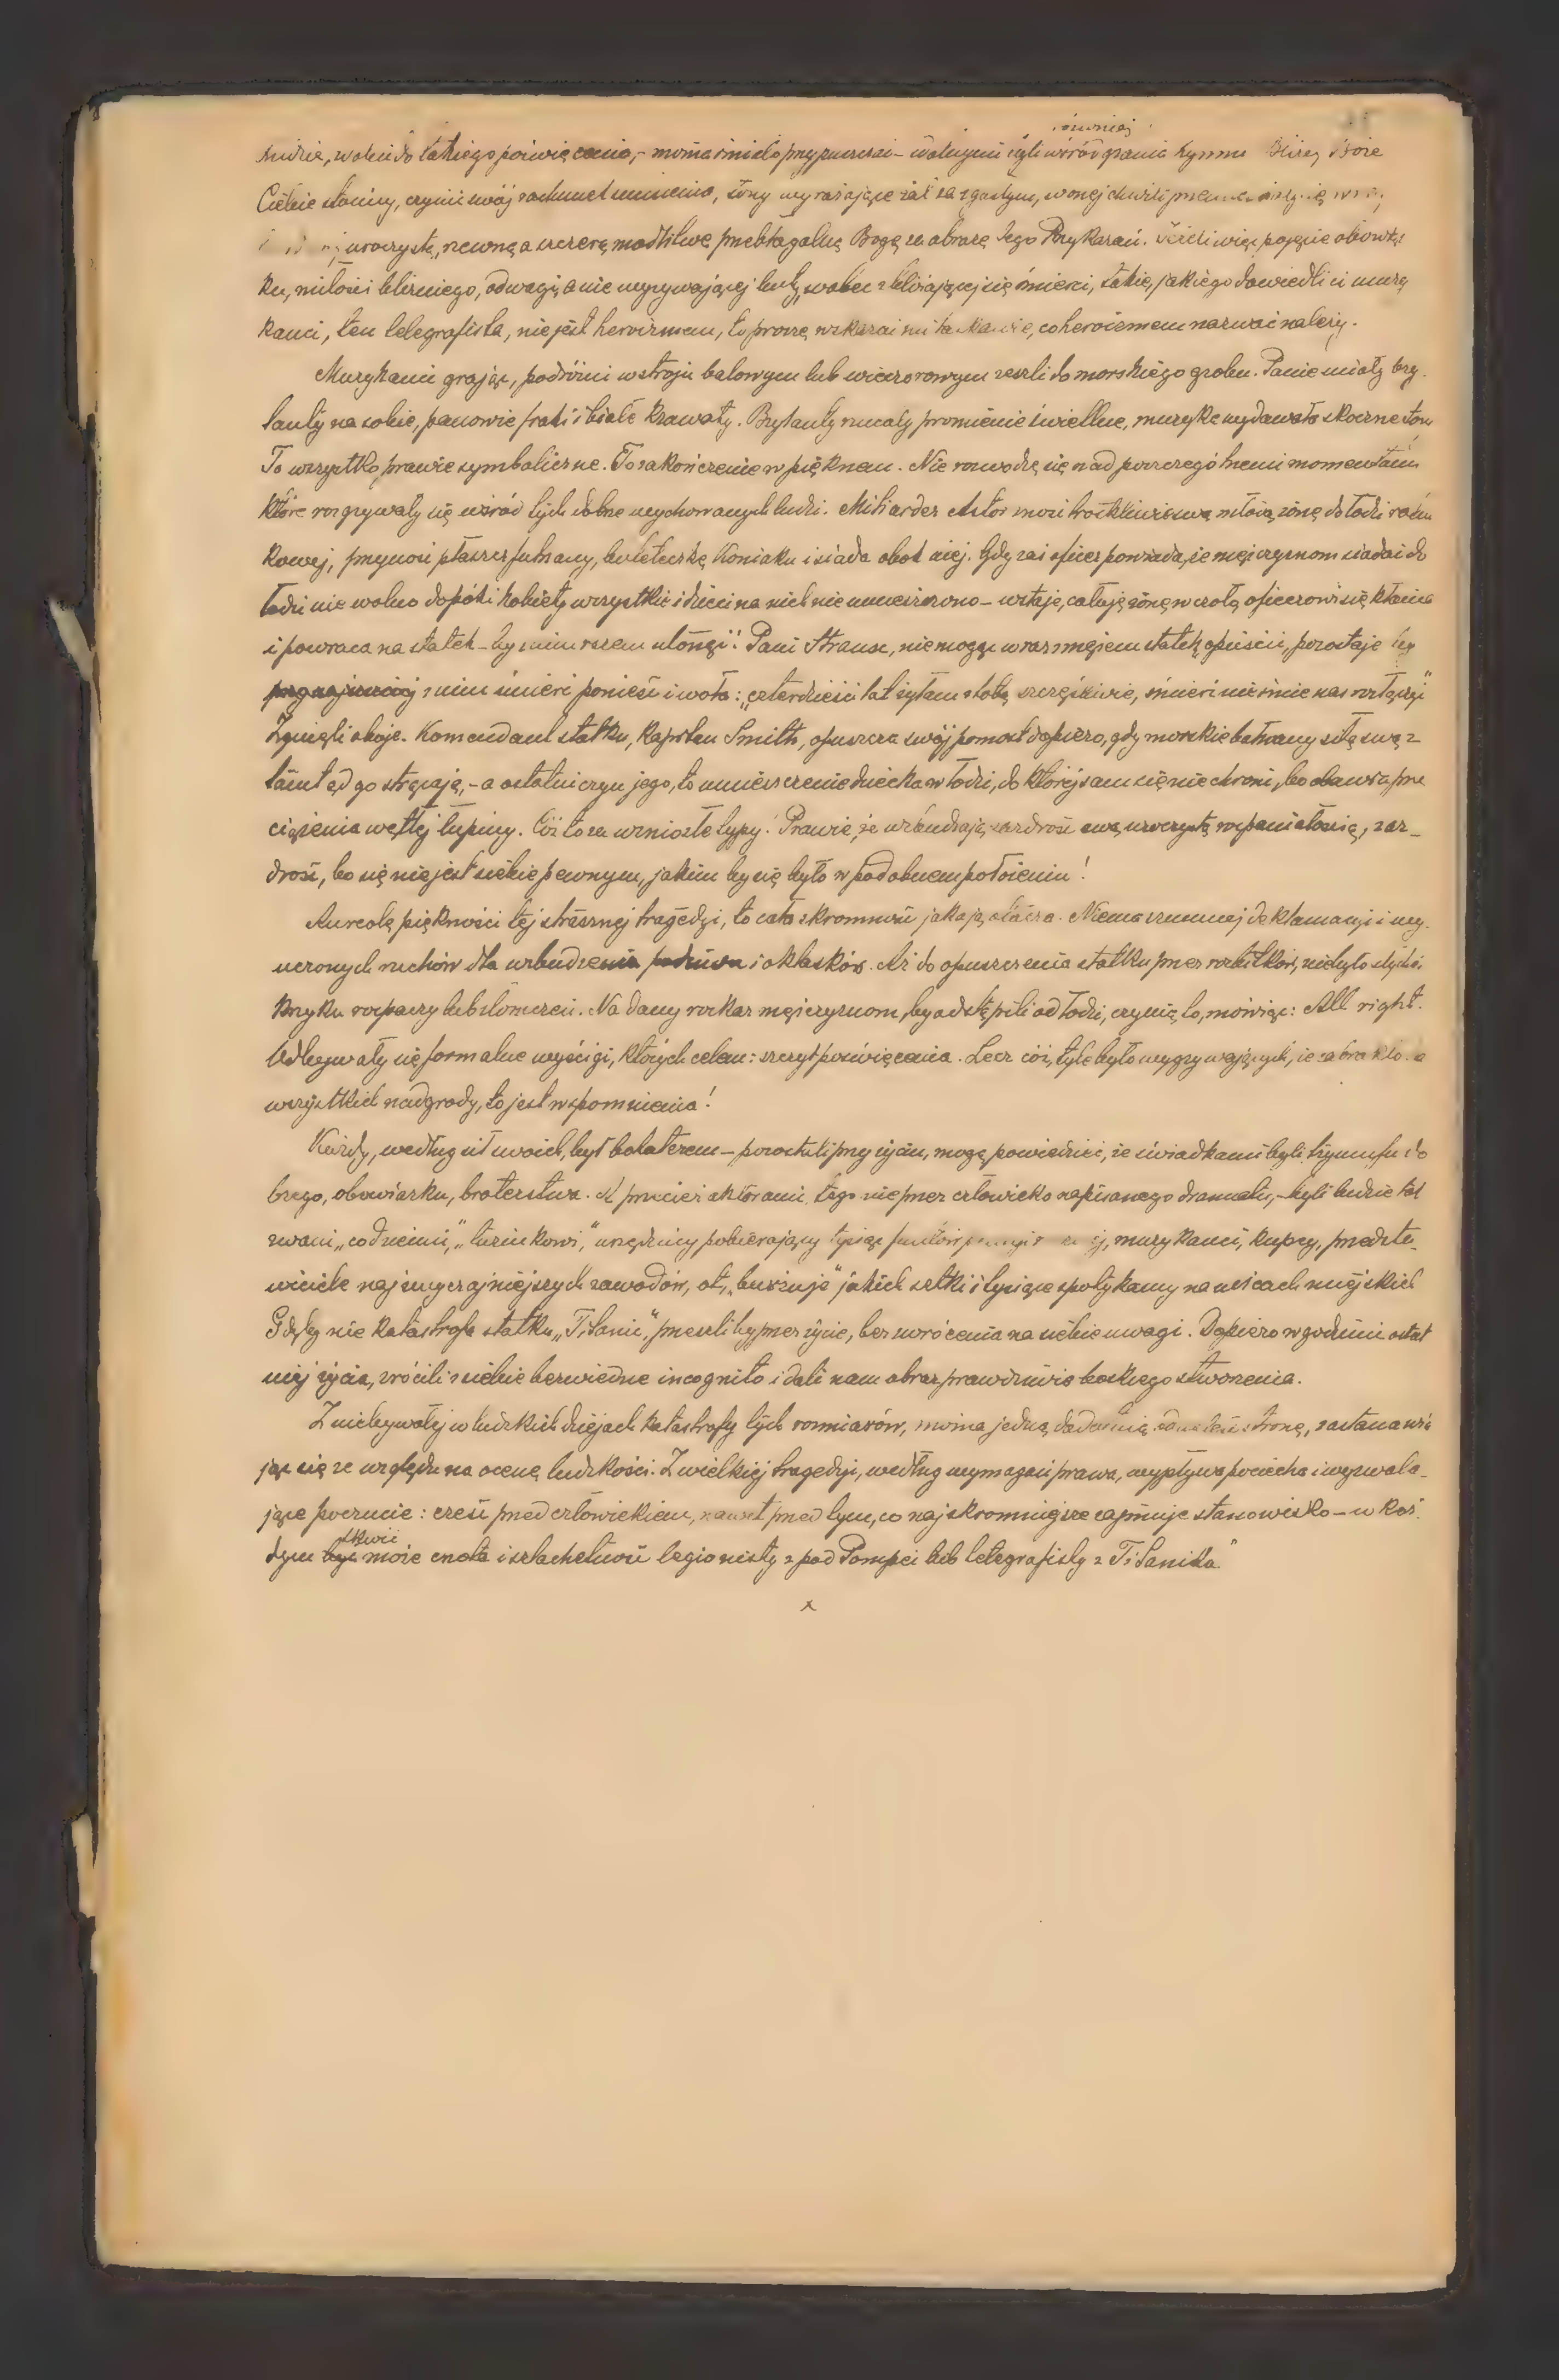 również
ludzie, wobec do takiego poświęcenia,- można śmiało przypuszczać - wśród grania hymnu Bliżej Boże
Ciebie staniemy, czynić swój rachunek sumienia, żony wyrażające żal za zgasłym, w onej chwili
uroczystą, rzewną a szczerą modlitwę przebłagalną Boga za obrazę Jego Przykazań. Jeżeli więc pojęcie obowiąz
ku, miłości bliźniego, odwagi, a nie wyzywającej buty, wobec zbliżającej się śmierci, takie, jakiego dowiedli ci muzy
kanci, ten telegrafista, nie jest heroizmem, to proszę wskazać mi co heroizmem nazwać należy.
Muzykanci grając, podróżni w stroju balowym lub wieczorowym zeszli do morskiego grobu. Panie miały bry-
lanty na sobie, panowie fraki i białe krawaty. Brylanty rzucały promienie świetlne, muzyka wydawała skoczne tony
To wszystko prawie symboliczne. To zakończenie w pięknem. Nie rozwodzę się nad poszczególnemi momentami
które rozgrywały się wśród tych dobrze wychowanych ludzi. Miliarder Astor znosi troskliwie swą młodą żonę do łodzi ratun
kowej, przynosi płaszcz futrzany, buteleczkę koniaku i siada obok niej. Gdy zaś oficer powiada, że mężczyznom siadać do
łodzi nie wolno dopóki kobiety wszystkie i dzieci na nich nie umieszczono - wstaje, całuje żonę w czoło, oficerowi się kłania
i powraca na statek - by z nim razem utonąć! Pani Strauss, nie mogąc wraz z mężem statku opuścić, pozostaje by
z nim śmierć ponieść i woła: „czterdzieści lat żyłam z tobą szczęśliwie, śmierć nie śmie nas rozłączyć"
Zginęli oboje. Komendant statku, kapitan Smith, opuszcza swój pomost dopiero, gdy morskie bałwany siłą swą z
tamtąd go strącają,- a ostatni czyn jego, to umieszczenie dziecka w łodzi, do której sam się nie chroni, bo obawia prze
ciążenia wątłej łupiny. Cóż to za wzniosłe typy! Prawie, że wzbudzają zazdrość swą uroczystą wspaniałością, zaz-
drość, bo się nie jest siebie pewnym, jakim by się było w podobnem położeniu!
Aureolą piękności tej strasznej tragedji, to cała skromność jaka ją otacza. Niema szumnej deklamacji i wy-
uczonych ruchów dla wzbudzenia podziwu i oklasków. Aż do opuszczenia statku przez rozbitków, nie było słychać
krzyku rozpaczy lub złorzeczeń. Na dany rozkaz mężczyznom, by odstąpili od łodzi, czynią to, mówiąc: All right.
Odbywały się formalne wyścigi, których celem: szczyt poświęcenia. Lecz cóż, tyle było wygrywających, że zabrakło dla
wszystkich nadgrody, to jest wspomnienia!
Każdy, według sił swoich, był bohaterem - pozostali przy życiu, mogą powiedzieć, że świadkami byli tryumfu do
brego, obowiązku, braterstwa. A przecież aktorami tego nie przez człowieka napisanego dramatu,- byli ludzie tak
zwani „codzienni," „tuzinkowi," urzędnicy pobierający tysiąc funtów muzykanci, kupcy, przedsta-
wiciele najzwyczajniejszych zawodów, ot, „burżuje" jakich setki i tysiące spotykamy na ulicach miejskich
Gdyby nie katastrofa statku „Titanic", przeszliby przez życie, bez zwrócenia na siebie uwagi. Dopiero w godzinie ostat
niej życia, zrócili z siebie bezwiedne incognito i dali nam obraz prawdziwie boskiego stworzenia.
Z niebywałej w ludzkich dziejach katastrofy tych rozmiarów, można jedną dodatnią stronę, zastanawia
jąc się ze względu na ocenę ludzkości. Z wielkiej tragedyi, według wymagań prawa, wypływa pociecha i wyzwala-
jące poczucie: cześć przed człowiekiem, nawet przed tym, co najskromniejsze zajmuje stanowisko - w każ
tkwić
dym być może cnota i szlachetność legionisty z pod Pompei lub telegrafisty z Titanika"
x